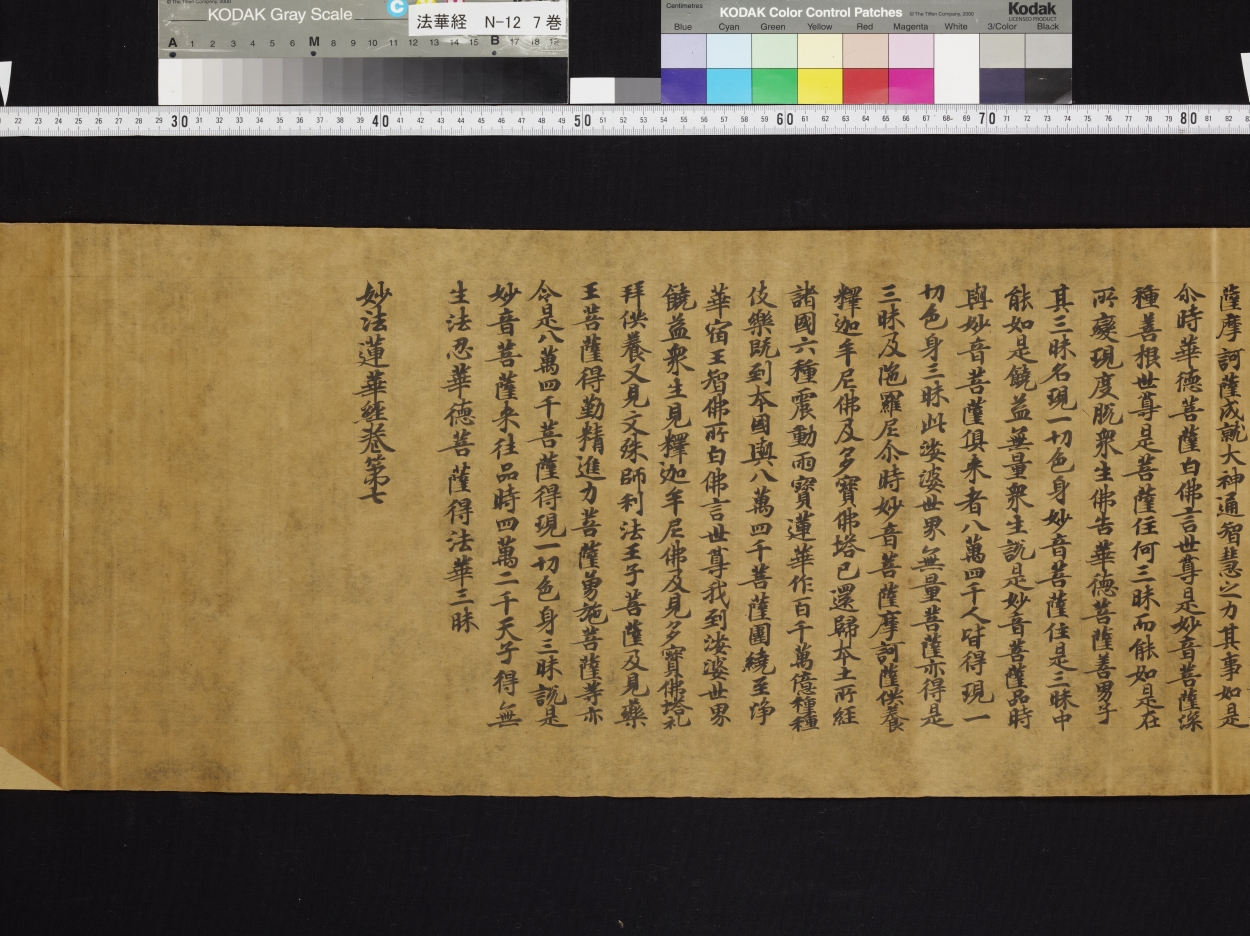 © The Tiffen Company, 2000
KODAK Gray Scale
C
法華経 N-12 7巻
A 1 2 3 4 5 6 M 8 9 10 11 12 13 14 15 B 17 18 19
Centimetres
KODAK Color Control Patches © The Tiffen Company, 2000 Kodak
LICENSED PRODUCT
Blue Cyan Green Yellow Red Magenta White 3/Color Black
22 23 24 25 26 27 28 29 30 31 32 33 34 35 36 37 38 39 40 41 42 43 44 45 46 47 48 49 50 51 52 53 54 55 56 57 58 59 60 61 62 63 64 65 66 67 68 69 70 71 72 73 74 75 76 77 78 79 80 81 82
薩摩訶薩成就大神通智慧之力其事如是
尒時華德菩薩白佛言世尊是妙音菩薩深
種善根世尊是菩薩住何三昧而能如是在
所變現度脫衆生佛告華德菩薩善男子
其三昧名現一切色身妙音菩薩住是三昧中
能如是饒益無量衆生說是妙音菩薩品時
與妙音菩薩俱来者八萬四千人皆得現一
切色身三昧此娑婆世界無量菩薩亦得是
三昧及陁羅尼尒時妙音菩薩摩訶薩供養
釋迦牟尼佛及多寶佛塔已還歸本土所經
諸國六種震動雨寶蓮華作百千萬億種種
伎樂既到本國與八萬四千菩薩圍繞至淨
華宿王智佛所白佛言世尊我到娑婆世界
饒益衆生見釋迦牟尼佛及見多寶佛塔礼
拜供養又見文殊師利法王子菩薩及見藥
王菩薩得勤精進力菩薩勇施菩薩等亦
令是八萬四千菩薩得現一切色身三昧說是
妙音菩薩来往品時四萬二千天子得無
生法忍華德菩薩得法華三昧
妙法蓮華經卷第七